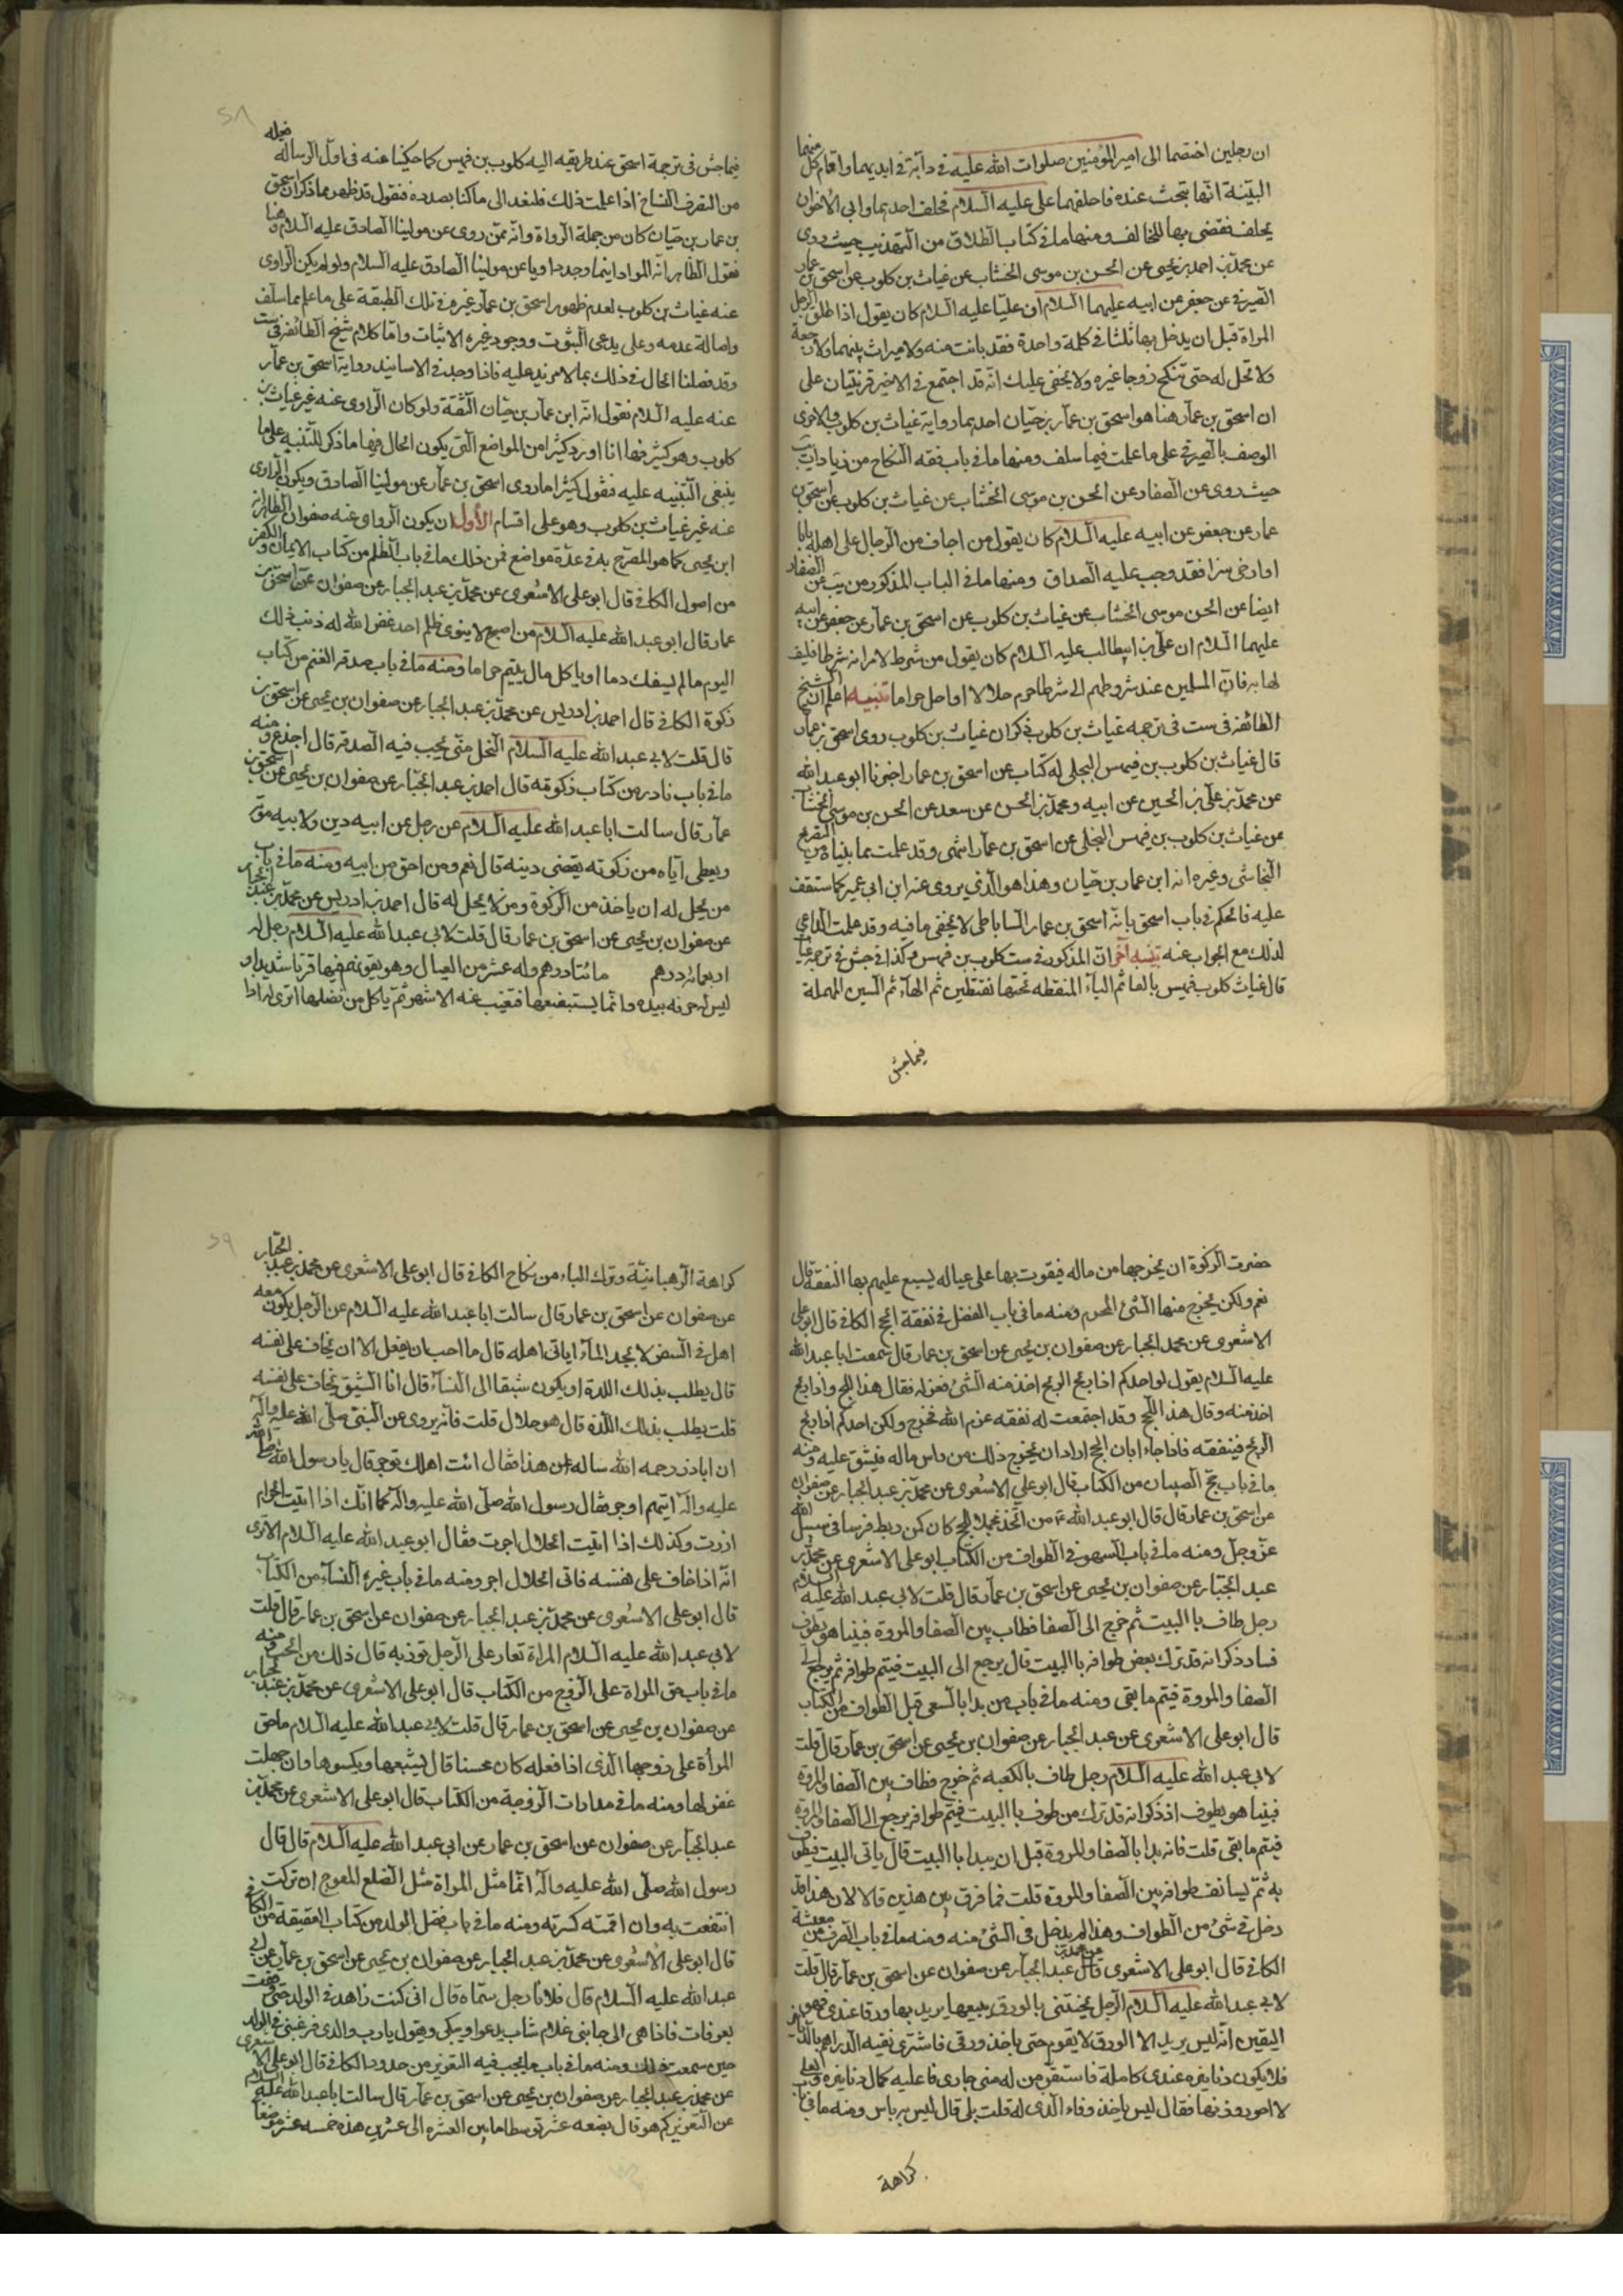 ان رجلين اختصما الى امير المؤمنين صلوات الله عليه في دابة في ايديهما واقام كل منهما
البينة انها نتجت عنده فاحلفهما على عليه السلام فحلف احدهما وابى الاخر ان
يحلف فقضى بها للحالف ومنها ما في كتاب الطلاق من التهذيب حيث روى
عن محمد بن احمد بن يحيى عن الحسن بن موسى الخشاب عن غياث بن كلوب عن اسحق بن عمار
الصيرفي عن جعفر عن ابيه عليهما السلام ان عليا عليه السلام كان يقول اذا طلق الرجل
المراة قبل ان يدخل بها ثلثا في كلمة واحدة فقد بانت منه ولا ميراث بينهما ولا رجعة
ولا تحل له حتى تنكح زوجا غيره ولا يخفى عليك انه قد اجتمع في الاخير قرينتان على
ان اسحق بن عمار هنا هو اسحق بن عمار بن حيان احديهما رواية غياث بن كلوب والاخرى
الوصف بالصيرفي على ما علمت فيما سلف ومنها ما في باب فقه النكاح من زيادات يب
حيث روى عن الصفار عن الحسن بن موسى الخشاب عن غياث بن كلوب عن اسحق بن
عمار عن جعفر عن ابيه عليه السلام كان يقول من اجاف من الرجال على اهله بابا
او ارخى سترا فقد وجب عليه الصداق ومنها ما في الباب المذكور من يب عن الصفار
ايضا عن الحسن موسى الخشاب عن غياث بن كلوب عن اسحق بن عمار عن جعفر عن ابيه
عليهما السلام ان على بن ابيطالب عليه السلام كان يقول من شرط لامراته شرطا فليف
لها به فان المسلمين عند شروطهم الى شرطا حرم حلالا او احل حراما تنبيه اعلم ان شيخ
الطائفة في ست في ترجمة غياث بن كلوب ذكر ان غياث بن كلوب روى اسحق بن عمار
قال غياث بن كلوب بن فيهس البجلي له كتاب عن اسحق بن عمار اخبرنا ابو عبد الله
عن محمد بن على بن الحسين عن ابيه ومحمد بن الحسن عن سعد عن الحسن بن موسى الخشاب
عن غياث بن كلوب بن فيهس البجلي عن اسحق بن عمار انتهى وقد علمت بما بنياه من التصريح
النجاشي وغيره انه ابن عمار بن حيان وهذا هو الذي يروى عنه ابن ابى عمير كما ستقف
عليه فالحكم في باب اسحق بانه اسحق بن عمار الساباطي لا يخفى ما فيه وقد علمت الداعي
لذلك مع الجواب عنه تنبيه آخر ان المذكور في ست كلوب بن فيهس وكذا في جش في ترجمة غياث
قال غياث كلوب فيهس بالفا ثم الياء المنقطه تحتها نقطتين ثم الهاء ثم السين المهملة
فيما جش
فيما جش في ترجمة اسحق عند طريقه اليه كلوب بن فيهس كما حكينا عنه في اول الرسالة
من التصرف النساخ اذا علمت ذلك فلنعد الى ما كنا بصدده فنقول قد ظهر مما ذكر ان اسحق
بن عمار بن حيان كان من جملة الرواة وانه ممن روى عن مولينا الصادق عليه السلام
نقول الظاهر انه المراد اينما وجد راويا عن مولينا الصادق عليه السلام ولو لم يكن الراوى
عنه غياث بن كلوب لعدم ظهور اسحق بن عمار غيره في تلك الطبقة على ما علم مما سلف
واصالة عدمه وعلى يدعى الثبوت ووجود غيره الاثبات واما كلام شيخ الطائفة في ست
وقد فصلنا الحال في ذلك بما لا مزيد عليه فاذا وجد في الاسانيد رواية اسحق بن عمار
عنه عليه السلام نقول انه ابن عمار بن حيان الثقة ولو كان الراوى عنه غير غياث بن
كلوب وهو كثير فها انا اورد كثيرا من المواضع التي يكون الحال فيها ما ذكر للتنبيه على ما
ينبغي التنبيه عليه فنقول كثيرا ما روى اسحق بن عمار عن مولينا الصادق ويكون الراوى
عنه غير غياث بن كلوب وهو على اقسام الأول ان يكون الراوى عنه صفوان الظاهر انه
ابن يحيى كما هو المصرح به في عدة مواضع فمن ذلك ما في باب الظلم من كتاب الايمان والكفر
من اصول الكافي قال ابو على الاشعرى عن محمد بن عبد الجبار عن صفوان عن اسحق بن
عمار قال ابو عبد الله عليه السلام من اصبح لا ينوى ظلم احد غفر الله له ذنب ذلك
اليوم ما لم يسفك دما او ياكل مال يتيم حراما ومنه ما في باب صدقة الغنم من كتاب
زكوة الكافي قال احمد بن ادريس عن محمد بن عبد الجبار عن صفوان بن يحيى عن اسحق بن
قال قلت لابي عبد الله عليه السلام النخل متى يجب فيه الصدقة قال اجذع ومنه
ما في باب نادر من كتاب زكوته قال احمد بن عبد الجبار عن صفوان بن يحيى عن اسحق بن
عمار قال سالت ابا عبد الله عليه السلام عن رجل عن ابيه دين ولابيه مؤنة
ويعطى اياه من زكوته يقضى دينه قال نعم ومن احق من ابيه ومنه ما في باب
من يحل له ان ياخذ من الزكوة ومن لا يحل له قال احمد بن ادريس عن محمد بن عبد الجبار
عن صفوان بن يحيى عن اسحق بن عمار قال قلت لابي عبد الله عليه السلام رجل له
اربعمائة درهم مائتا درهم وله عشر من العيال وهو يقوتهم فيها قوتا شديدا و
ليس له حرفة بيده وانما يستبضعها فتغيب عنه الاشهر ثم ياكل من فضلها اترى له اذا
حضرت الزكوة ان يخرجها من ماله فيقوت بها على عياله يسبع عليهم بها النفقة قال
نعم ولكن يخرج منها الشئ الدرهم ومنه ما في باب الفضل في نفقة الحج الكافي قال ابو على
الاشعرى عن محمد الجبار عن صفوان بن يحيى عن اسحق بن عمار قال سمعت ابا عبد الله
عليه السلام يقول لو احدكم اذا ربح الربح اخذ منه الشئ فعزله فقال هذا للحج واذا ربح
اخذ منه وقال هذا للحج وقد اجتمعت له نفقة عزم الله فخرج ولكن احدكم اذا ربح
الربح فينفقه فاذا جاء ابان الحج اراد ان يخرج ذلك من راس ماله فيشق عليه ومنه
ما في باب حج الصبيان من الكتاب قال ابو علي الاشعرى عن محمد بن عبد الجبار عن صفوان
عن اسحق بن عمار قال قال ابو عبد الله ع من اتخذ محملا للحج كان كمن ربط فرسا في سبيل الله
عز وجل ومنه ما في باب السهو في الطواف من الكتاب ابو على الاشعرى عن محمد بن
عبد الجبار عن صفوان بن يحيى عن اسحق بن عمار قال قلت لابي عبد الله عليه السلام
رجل طاف باالبيت ثم خرج الى الصفا فطاب بين الصفا والمروة فبينا هو يطوف
فساد ذكر انه قد ترك بعض طوافه باالبيت قال يرجع الى البيت فيتم طوافه ثم يرجع الى
الصفا والمروة فيتم ما بقى ومنه ما في باب من بدا بالسعى قبل الطواف من الكتاب
قال ابو على الاشعرى عن عبد الجبار عن صفوان بن يحيى عن اسحق بن عمار قال قلت
لابي عبد الله عليه السلام رجل طاف بالكعبه ثم خرج فطاف بين الصفا والمروة
فبينا هو يطوف اذ ذكر انه قد ترك من طوف باالبيت فيتم طوافه يرجع الى الصفا والمروة
فيتم ما بقى قلت فانه بدا بالصفا والمروة قبل ان يبدا باالبيت قال ياتى البيت فيطوف
به ثم يستانف طوافه بين الصفا والمروة قلت فما فرق بين هذين قالا لان هذا قد
دخل في شئ من الطواف وهذا لم يدخل في الشئ منه ومنه ما في باب الصرف من معيشة
الكافي قال ابو على الاشعرى قال عن محمد بن عبد الجبار عن صفوان عن اسحق بن عمار قال قلت
لابي عبد الله عليه السلام الرجل يجيئني بالورق يبيعها يريد بها ورقا عندى فهو
اليقين انه ليس يريد الا الورق لا يقوم حتى ياخذ ورقى فاشترى نقيه الدراهم بالدنانير
فلا يكون دنانيره عندى كاملة فاستقرض له من جارى فاعليه كمال دنانيره
لا احرز وزنها فقال ليس ياخذ وفاء الذى له قلت بلى قال ليس به باس ومنه ما في باب
كراهة
كراهة الرهبانية وترك الباه من نكاح الكافي قال ابو على الاشعرى عن محمد بن عبد الجبار
عن صفوان عن اسحق بن عمار قال سالت ابا عبد الله عليه السلام عن الرجل يكون معه
اهل في السفر لا يجد الماء اياتى اهله قال ما احب ان يفعل الا ان يخاف على نفسه
قال يطلب بذلك اللذة او يكون شبقا الى النساء قال انا الشبق يخاف على نفسه
قلت يطلب بذلك اللذة قال هو حلال قلت فانه يروى عن النبي صلى الله عليه واله
ان اباذر رحمه الله ساله عن هذا فقال ائت اهلك توجر قال يا رسول الله صلى الله
عليه واله اتيهم اوجر فقال رسول الله صلى الله عليه واله كما انك اذا اتيت الحرام
ازرت وكذلك اذا اتيت الحلال اجرت وقال ابو عبد الله عليه السلام الا ترى
انه اذا خاف على نفسه فاتى الحلال اجر ومنه ما في باب غيره النساء من الكتاب
قال ابو على الاشعرى عن محمد بن عبد الجبار عن صفوان عن اسحق بن عمار قال قلت
لابي عبد الله عليه السلام المراة تغار على الرجل توذيه قال ذلك من الحب ومنه
ما في باب حق المراة على الزوج من الكتاب قال ابو على الاشعرى عن محمد بن عبد الجبار
عن صفوان بن يحيى عن اسحق بن عمار قال قلت لابي عبد الله عليه السلام ما حق
المرأة على زوجها الذى اذا فعله كان محسنا قال يشبعها ويكسوها وان جهلت
غفر لها ومنه ما في مدارات الزوجة من الكتاب قال ابو على الاشعرى عن محمد بن
عبد الجبار عن صفوان عن اسحق بن عمار عن ابى عبد الله عليه السلام قال قال
رسول الله صلى الله عليه واله انما مثل المراة مثل الضلع المعوج ان تركته
انتفعت به وان اقمته كسرته ومنه ما في باب فضل الولد من كتاب العقيقة من الكافي
قال ابو على الاشعرى عن محمد بن عبد الجبار عن صفوان بن يحيى عن اسحق بن عمار عن ابى
عبد الله عليه السلام قال فلانا رجل سماه قال انى كنت زاهدا في الولد حتى وقفت
بعرفات فاذا هى الى جانبى غلام شاب يدعو ويبكى ويقول يارب والدى فرغبنى في الولد
حين سمعت ذلك ومنه ما في باب ما يجب فيه التعزير من حدود الكافي قال ابو على الاشعرى
عن محمد بن عبد الجبار عن صفوان بن يحيى عن اسحق بن عمار قال سالت ابا عبد الله عليه السلام
عن التعزير كم هو قال بضعه عشر توسطا ما بين العشره الى عشرين هذه خمسه عشر موضعا